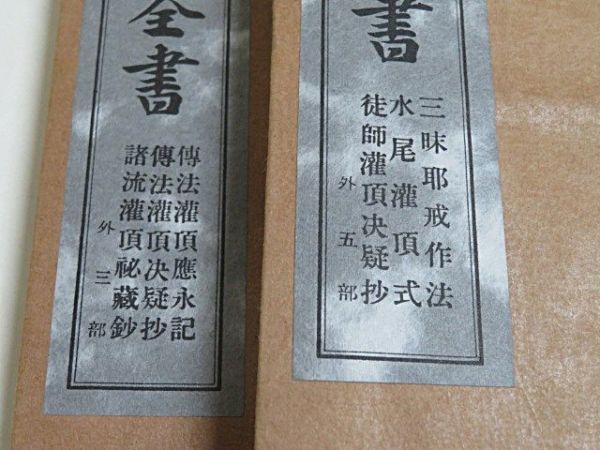 書
三昧耶戒作法
水尾灌頂式
徒師灌頂决疑抄
外五部
全書
傳法灌頂應永記
傳法灌頂决疑抄
諸流灌頂祕藏鈔
外三部